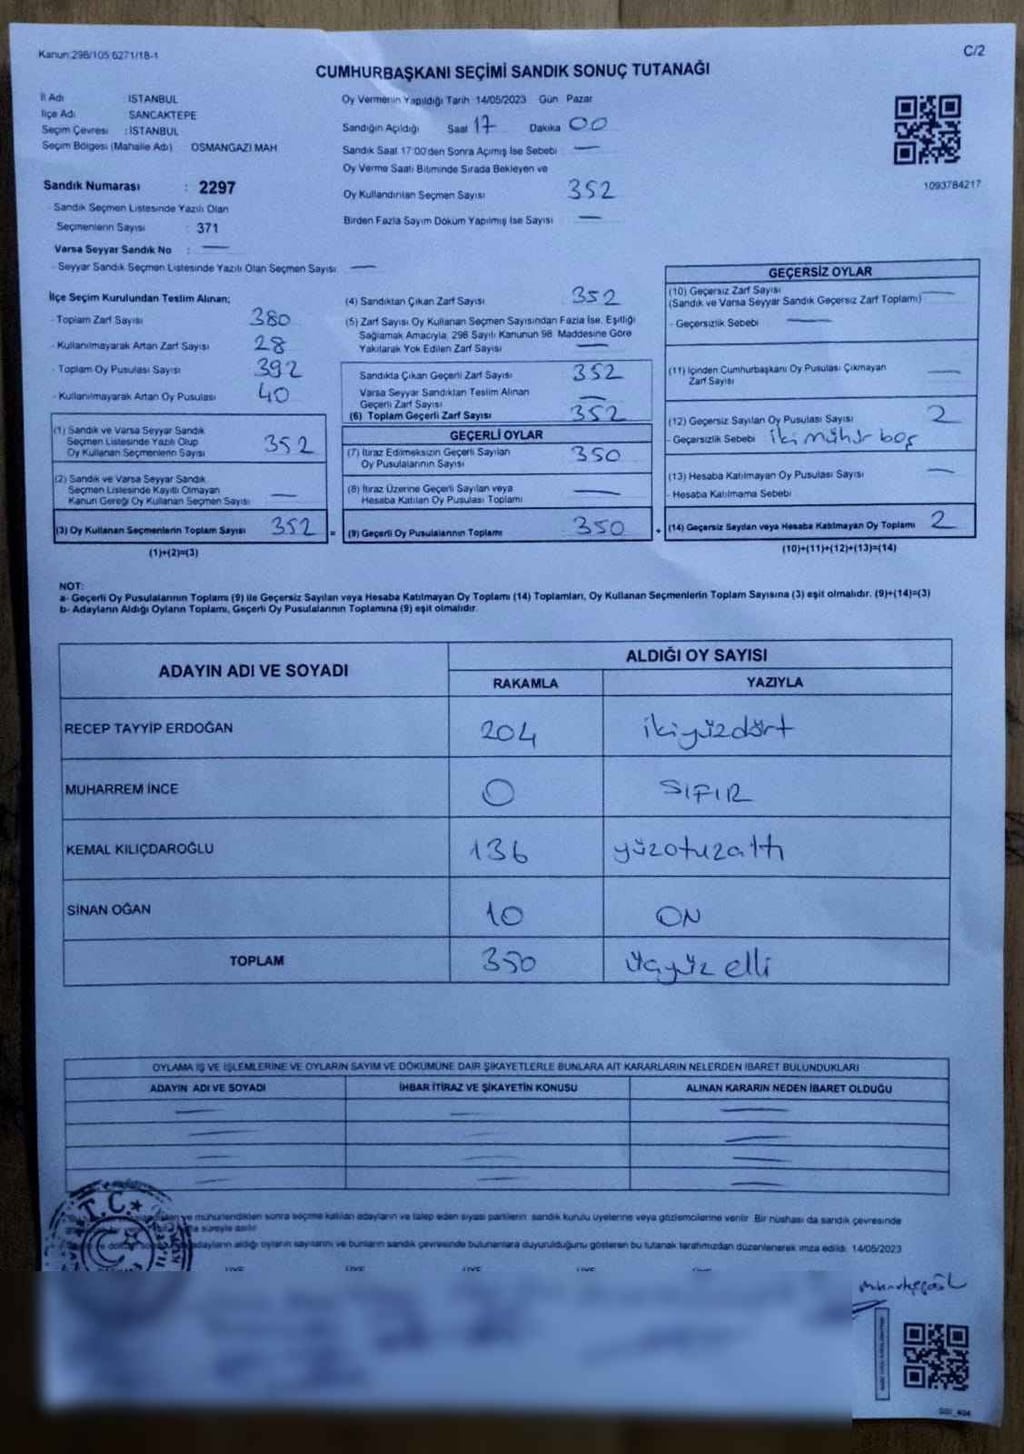 Kanun:298/105 6271/18-1
C/2
CUMHURBAŞKANI SEÇİMİ SANDIK SONUÇ TUTANAĞI
İl Adı : İSTANBUL
İlçe Adı : SANCAKTEPE
Seçim Çevresi : İSTANBUL
Seçim Bölgesi (Mahalle Adı) OSMANGAZI MAH
Sandık Numarası : 2297
- Sandık Seçmen Listesinde Yazılı Olan
Seçmenlerin Sayısı : 371
Varsa Seyyar Sandık No : —
- Seyyar Sandık Seçmen Listesinde Yazılı Olan Seçmen Sayısı: —
Oy Vermenin Yapıldığı Tarih 14/05/2023 Gün Pazar
Sandığın Açıldığı Saat 17 Dakika 00
Sandık Saat 17:00'den Sonra Açımış İse Sebebi —
Oy Verme Saati Bitiminde Sırada Bekleyen ve
Oy Kullandırılan Seçmen Sayısı 352
Birden Fazla Sayım Döküm Yapılmış İse Sayısı —
1093784217
İlçe Seçim Kurulundan Teslim Alınan;
- Toplam Zarf Sayısı 380
- Kullanılmayarak Artan Zarf Sayısı 28
- Toplam Oy Pusulası Sayısı 392
- Kullanılmayarak Artan Oy Pusulası 40
(1) Sandık ve Varsa Seyyar Sandık
Seçmen Listesinde Yazılı Olup
Oy Kullanan Seçmenlerin Sayısı 352
(2) Sandık ve Varsa Seyyar Sandık
Seçmen Listesinde Kayıtlı Olmayan
Kanun Gereği Oy Kullanan Seçmen Sayısı —
(3) Oy Kullanan Seçmenlerin Toplam Sayısı 352 =
(1)+(2)=(3)
(4) Sandıktan Çıkan Zarf Sayısı 352
(5) Zarf Sayısı Oy Kullanan Seçmen Sayısından Fazla İse, Eşitliği
Sağlamak Amacıyla, 298 Sayılı Kanunun 98. Maddesine Göre
Yakılarak Yok Edilen Zarf Sayısı —
Sandıkta Çıkan Geçerli Zarf Sayısı 352
Varsa Seyyar Sandıktan Teslim Alınan
Geçerli Zarf Sayısı —
(6) Toplam Geçerli Zarf Sayısı 352
GEÇERLİ OYLAR
(7) İtiraz Edilmeksizin Geçerli Sayılan
Oy Pusulalarının Sayısı 350
(8) İtiraz Üzerine Geçerli Sayılan veya
Hesaba Katılan Oy Pusulası Toplamı —
(9) Geçerli Oy Pusulalarının Toplamı 350 +
GEÇERSİZ OYLAR
(10) Geçersiz Zarf Sayısı —
(Sandık ve Varsa Seyyar Sandık Geçersiz Zarf Toplamı)
- Geçersizlik Sebebi —
(11) İçinden Cumhurbaşkanı Oy Pusulası Çıkmayan
Zarf Sayısı —
(12) Geçersiz Sayılan Oy Pusulası Sayısı 2
- Geçersizlik Sebebi iki mühür boş
(13) Hesaba Katılmayan Oy Pusulası Sayısı —
- Hesaba Katılmama Sebebi
(14) Geçersiz Sayılan veya Hesaba Katılmayan Oy Toplamı 2
(10)+(11)+(12)+(13)=(14)
NOT:
a- Geçerli Oy Pusulalarının Toplamı (9) ile Geçersiz Sayılan veya Hesaba Katılmayan Oy Toplamı (14) Toplamları, Oy Kullanan Seçmenlerin Toplam Sayısına (3) eşit olmalıdır. (9)+(14)=(3)
b- Adayların Aldığı Oyların Toplamı, Geçerli Oy Pusulalarının Toplamına (9) eşit olmalıdır.
ADAYIN ADI VE SOYADI
ALDIĞI OY SAYISI
RAKAMLA YAZIYLA
RECEP TAYYİP ERDOĞAN 204 ikiyüzdört
MUHARREM İNCE 0 SIFIR
KEMAL KILIÇDAROĞLU 136 yüzotuzaltı
SİNAN OĞAN 10 ON
TOPLAM 350 üçyüz elli
OYLAMA İŞ VE İŞLEMLERİNE VE OYLARIN SAYIM VE DÖKÜMÜNE DAİR ŞİKAYETLERLE BUNLARA AİT KARARLARIN NELERDEN İBARET BULUNDUKLARI
ADAYIN ADI VE SOYADI İHBAR İTİRAZ VE ŞİKAYETİN KONUSU ALINAN KARARIN NEDEN İBARET OLDUĞU
T.C.
ve mühürlendikten sonra seçime katılan adayların ve talep eden siyasi partilerin sandık kurulu üyelerine veya gözlemcilerine verilir. Bir nüshası da sandık çevresinde
süreyle asılır.
adayların aldığı oyların sayılarını ve bunların sandık çevresinde bulunanlara duyurulduğunu gösteren bu tutanak tarafımızdan düzenlenerek imza edildi. 14/05/2023